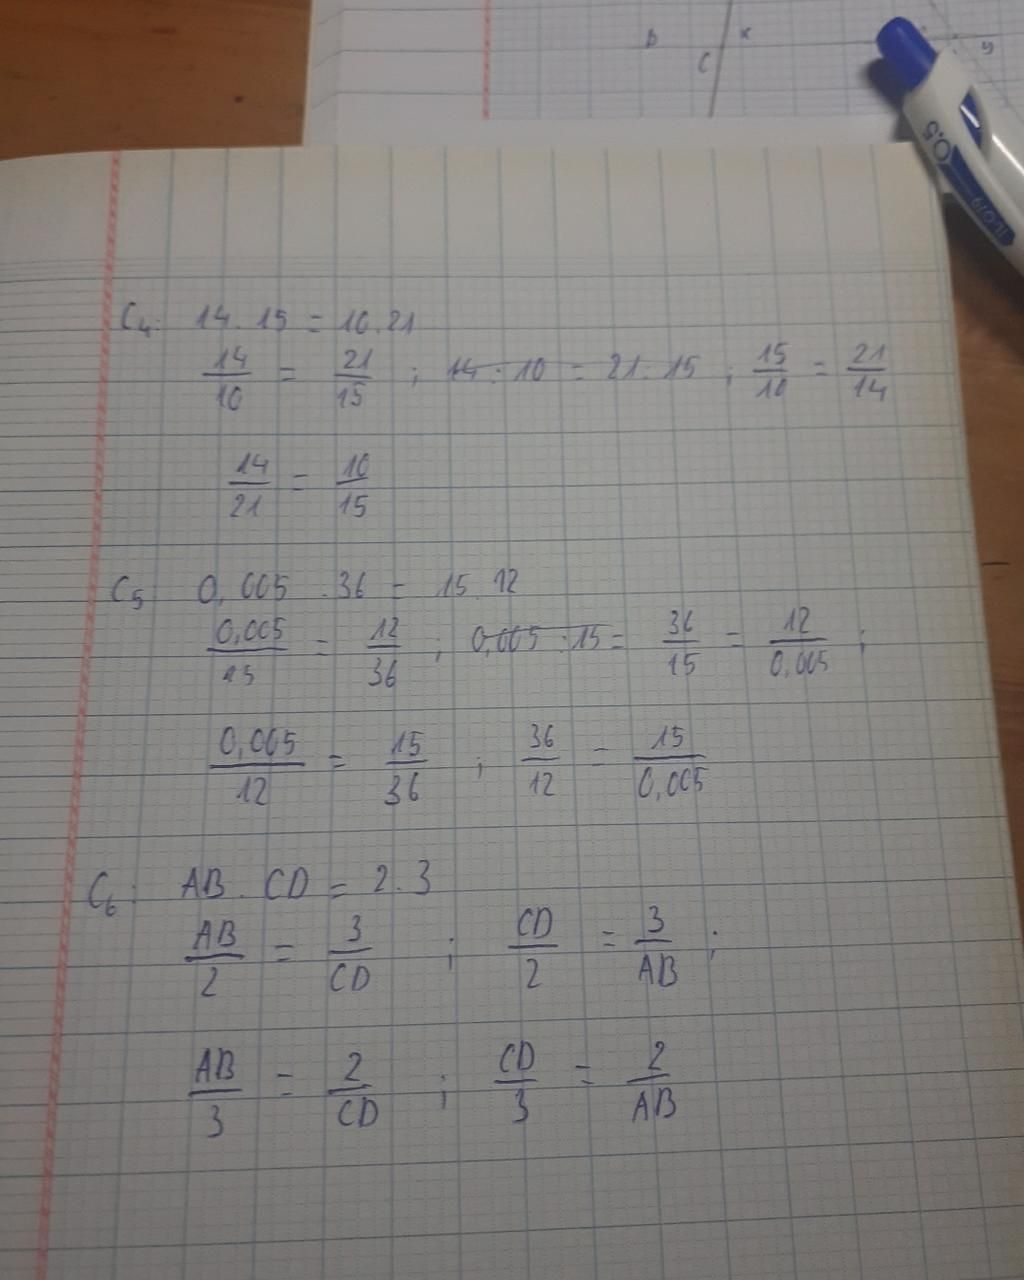 D K y
C
0,5
C4: 14.15 = 10.21
14/10 = 21/15 ; 14:10 = 21:15 ; 15/10 = 21/14
14/21 = 10/15
C5 0,005 .36 = 15.12
0,005/15 = 12/36 ; 0,005:15= 36/15 = 12/0,005 ;
0,005/12 = 15/36 ; 36/12 = 15/0,005
C6: AB.CD = 2.3
AB/2 = 3/CD ; CD/2 = 3/AB ;
AB/3 = 2/CD ; CD/3 = 2/AB